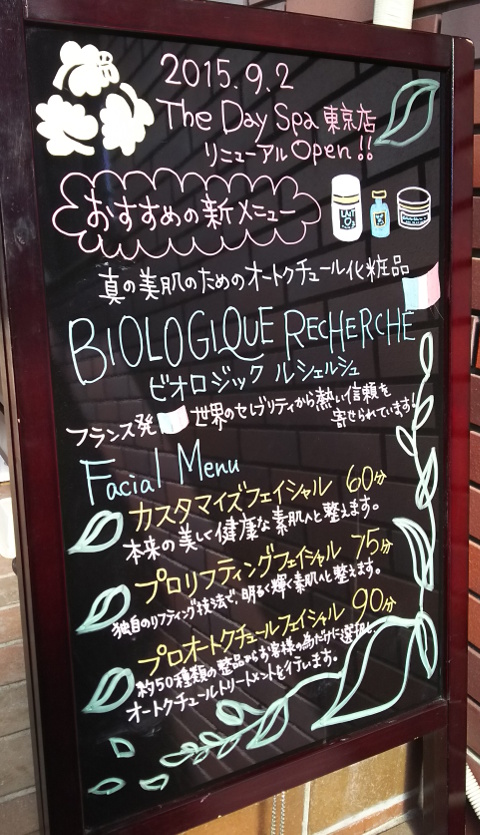 2015.9.2
The Day Spa 東京店
リニューアルOpen!!
おすすめの新メニュー
真の美肌のためのオートクチュール化粧品
BIOLOGIQUE RECHERCHE
ビオロジック ルシェルシュ
フランス発 世界のセレブリティから熱い信頼を
寄せられています!
Facial Menu
カスタマイズフェイシャル 60分
本来の美しく健康な素肌へと整えます。
プロリフティングフェイシャル 75分
独自のリフティング技法で、明るく輝く素肌へと整えます。
プロオートクチュールフェイシャル 90分
約50種類の製品からお客様の為だけに選択し、
オートクチュールトリートメントを行います。